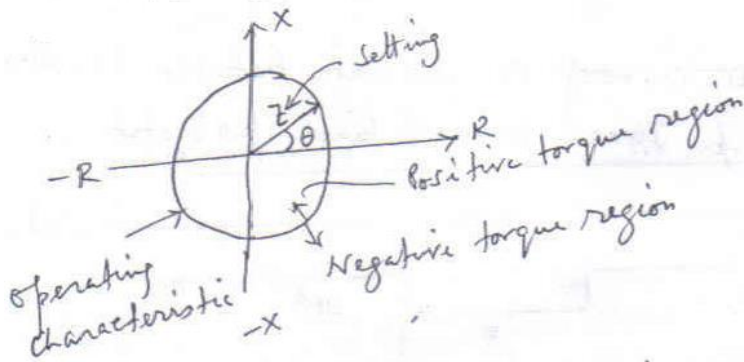 X
setting
Z
θ
R
-R
Positive torque region
Negative torque region
operating
characteristic
-X